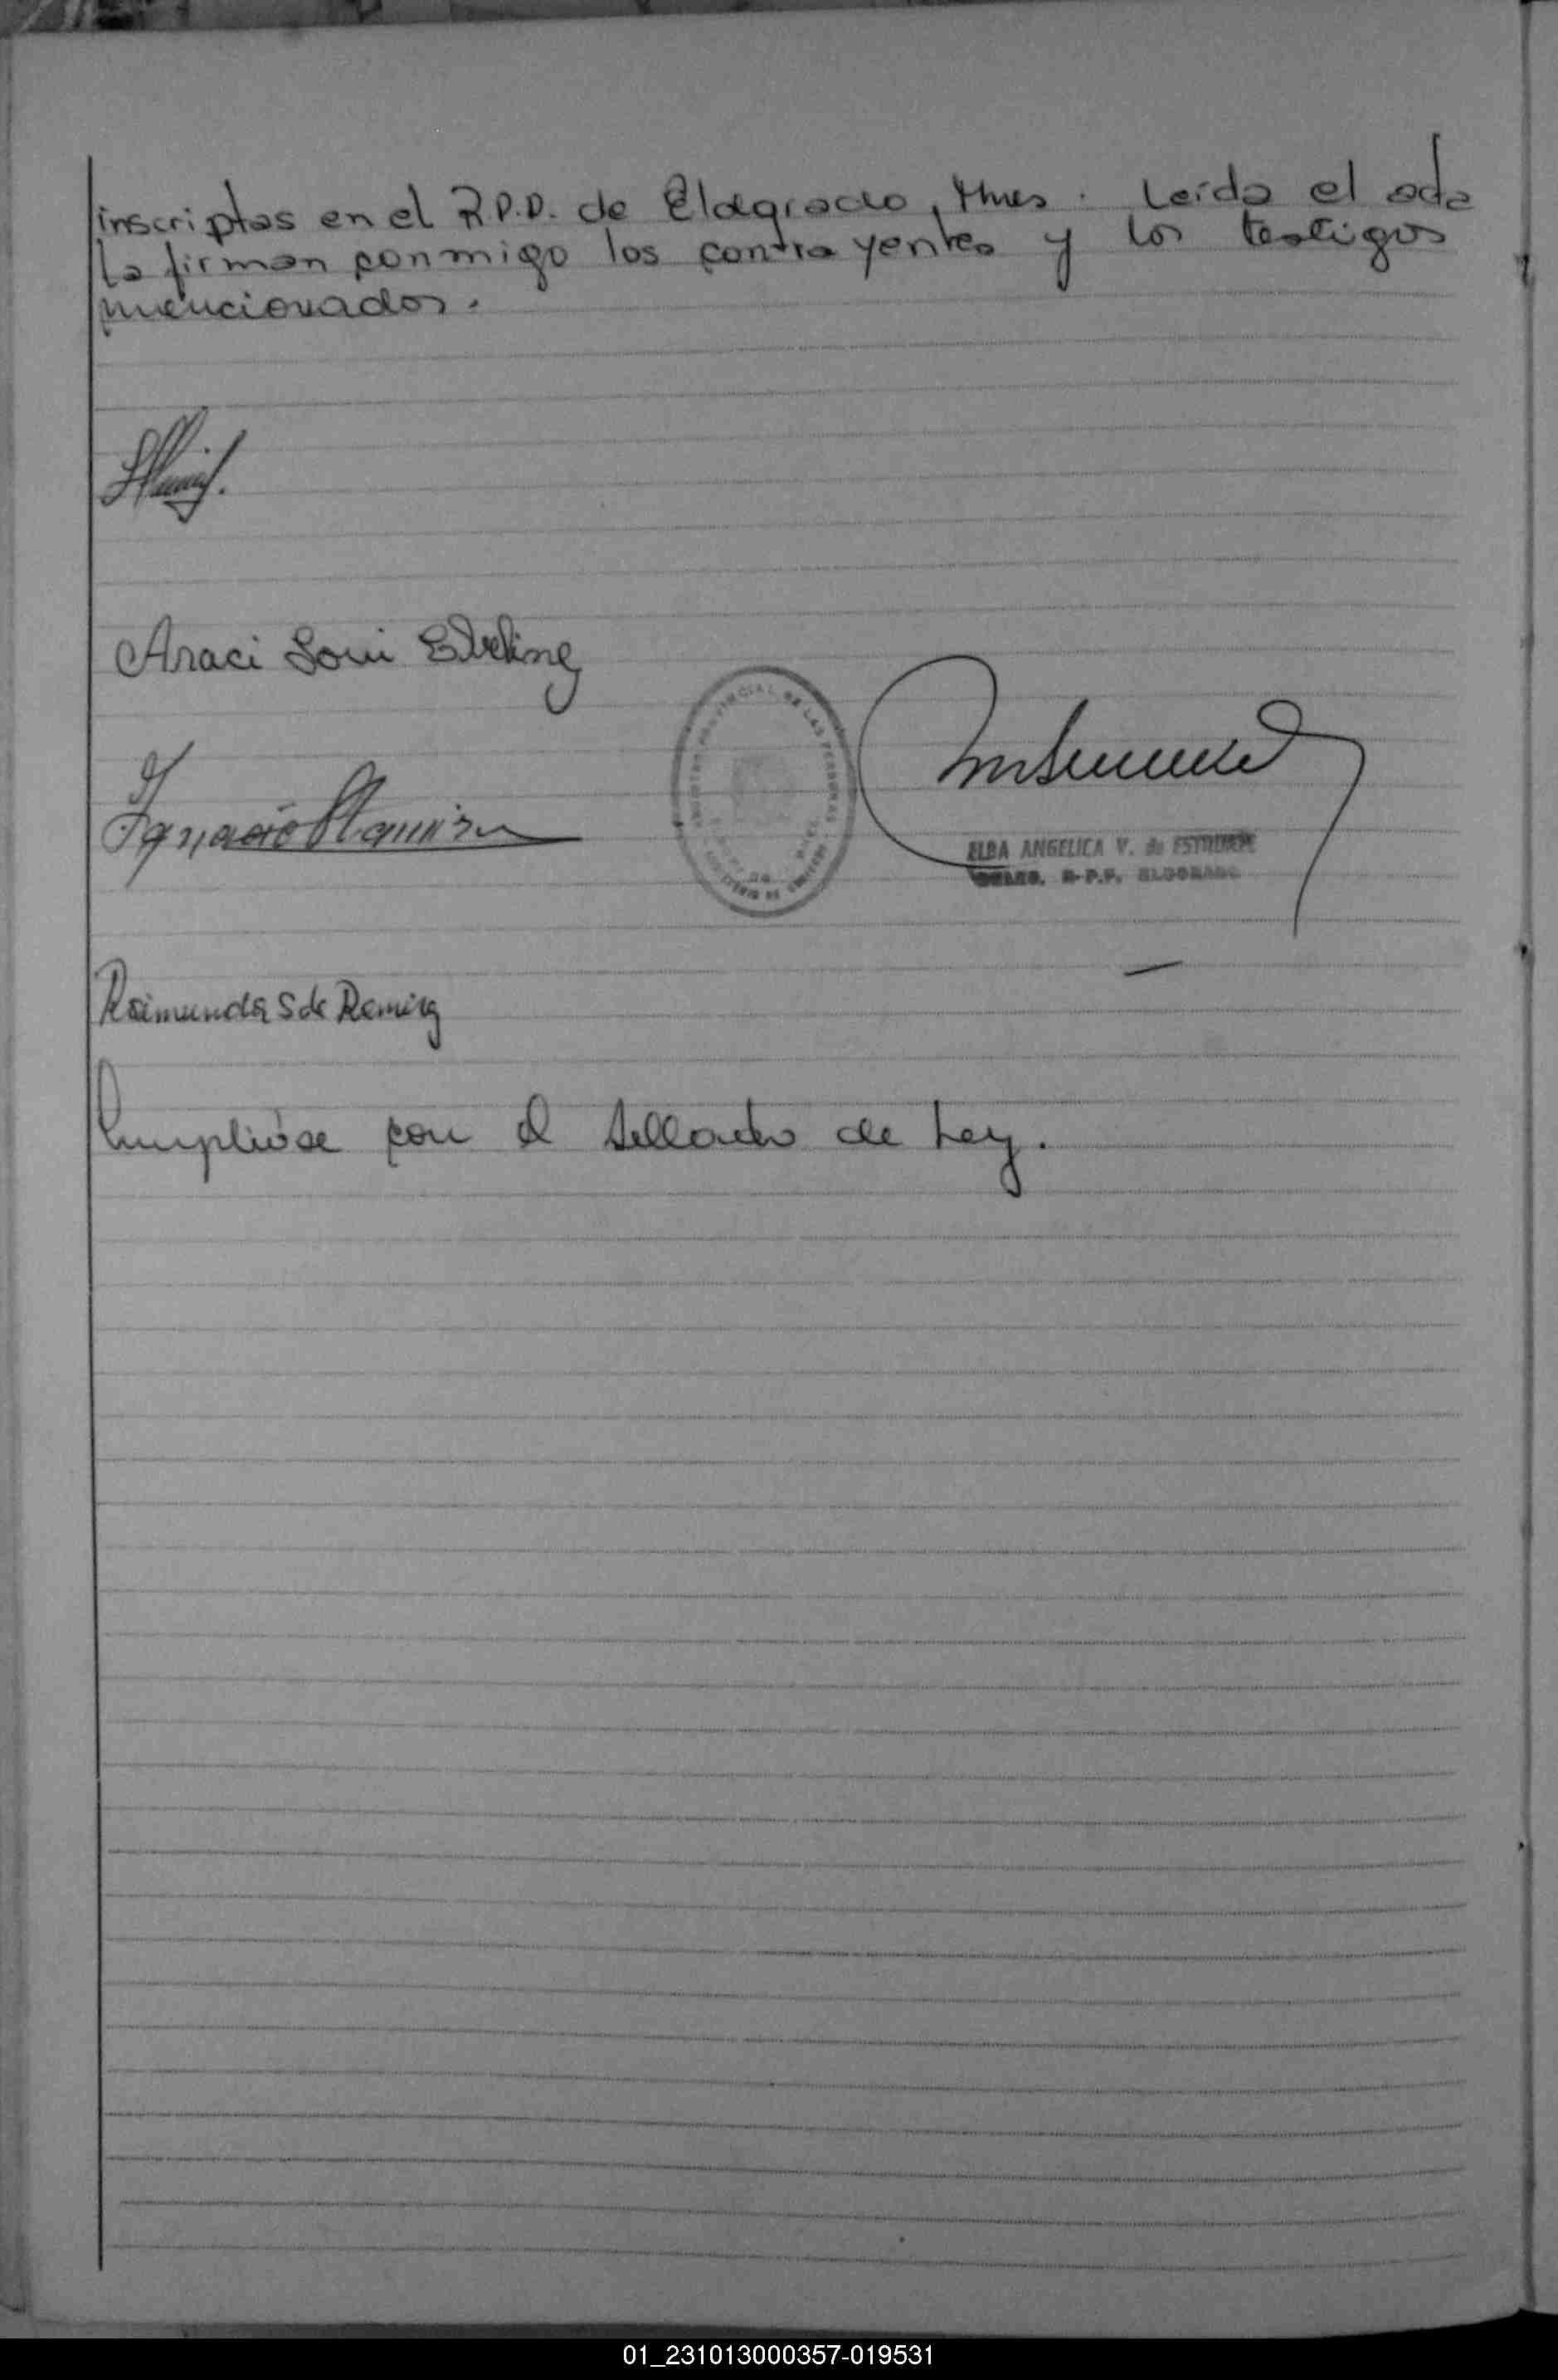 inscriptas en el R.P.D. de Eldorado, Mnes. Leída el acta
la firman conmigo los contrayentes y los testigos
mencionados.
Araci Loni Ebeling
Ignacio Ramirez
PROVINCIAL DE LAS PERSONAS
ELBA ANGELICA V. de
R.P.P. ELDORADO
Raimunda S de Ramirez
Cumplióse con el sellado de Ley.
01_231013000357-019531